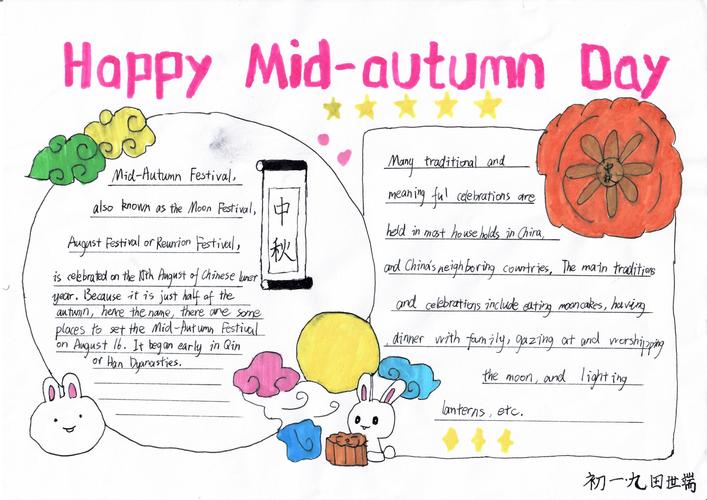 Happy Mid-autumn Day
Mid-Autumn Festival,
also known as the Moon Festival,
August Festival or Reunion Festival,
is celebrated on the 15th August of Chinese luner
year. Because it is just half of the
autumn, hence the name, there are some
places to set the Mid-Autumn Festival
on August 16. It began early in Qin
or Han Dyanasties.
中
秋
Many traditional and
meaning ful celebrations are
held in most households in China,
and China's neighboring countries, The main traditions
and celebrations include eating mooncakes, having
dinner with family, gazing at and worshipping
the moon, and lighting
lanterns, etc.
中秋
初一·九 田世端